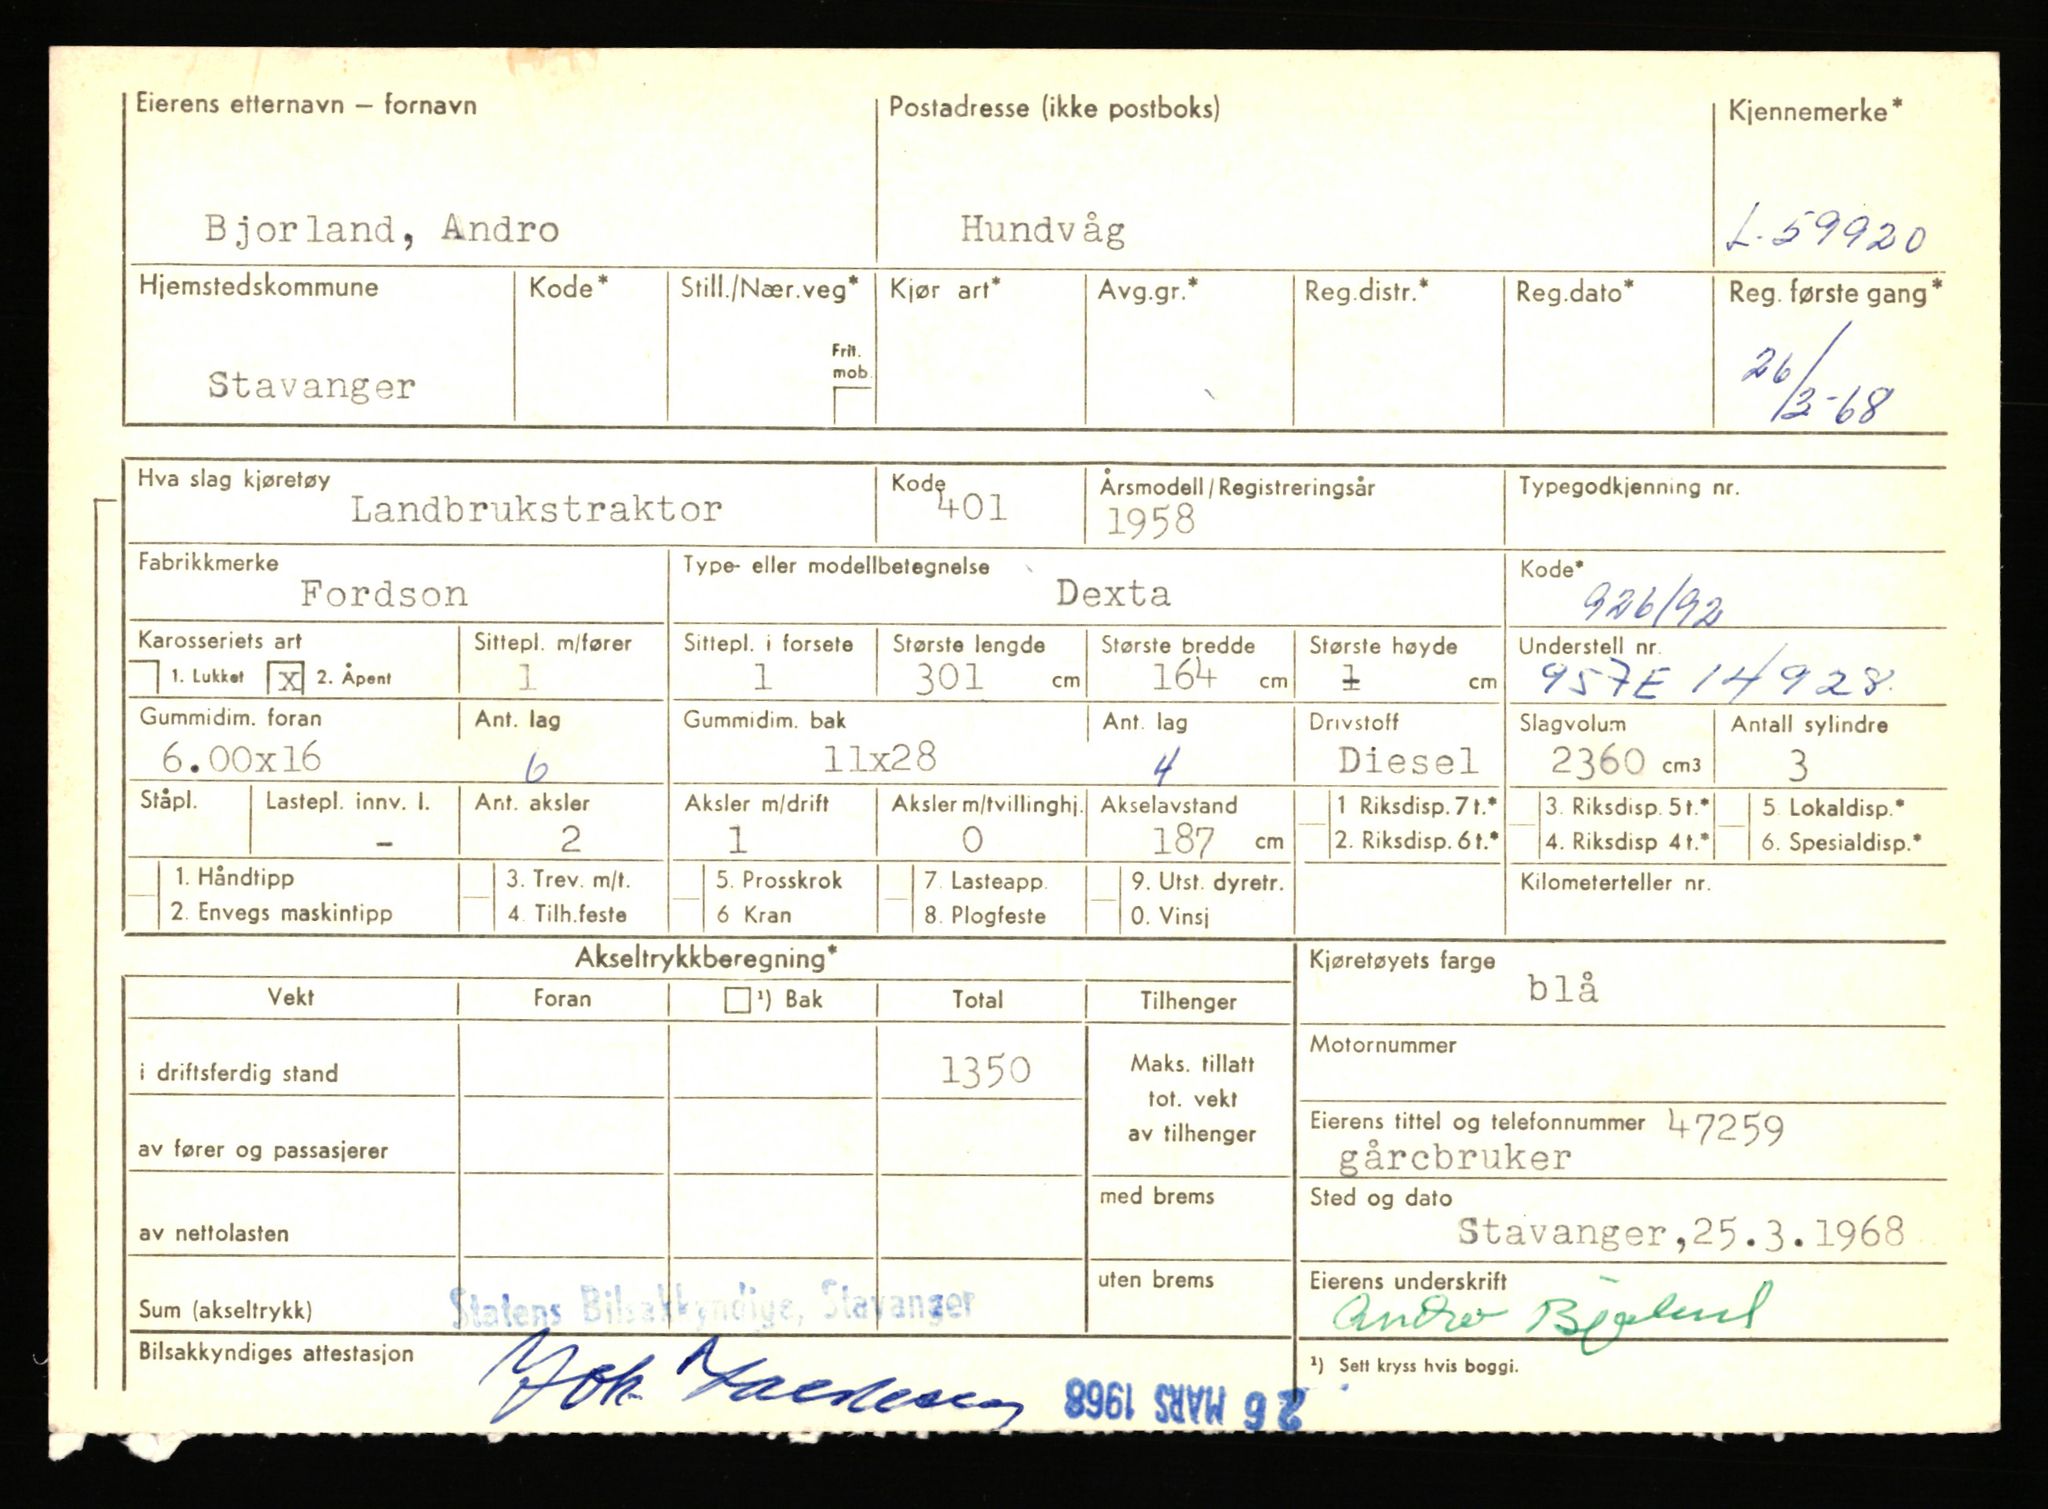 Eierens etternavn – fornavn
Postadresse (ikke postboks)
Kjennemerke*
Bjorland, Andro
Hundvåg
L-59920
Hjemstedskommune
Kode*
Still./Nær.veg*
Kjør art*
Avg.gr.*
Reg.distr.*
Reg.dato*
Reg. første gang*
Frit.
mob.
Stavanger
26/3-68
Hva slag kjøretøy
Landbrukstraktor
Kode
401
Årsmodell/Registreringsår
1958
Typegodkjenning nr.
Fabrikkmerke
Fordson
Type- eller modellbetegnelse
Dexta
Kode*
926/92
Karosseriets art
1. Lukket x 2. Åpent
Sittepl. m/fører
1
Sittepl. i forsete
1
Største lengde
301 cm
Største bredde
164 cm
Største høyde
1 cm
Understell nr.
957E 14928.
Gummidim. foran
6.00x16
Ant. lag
6
Gummidim. bak
11x28
Ant. lag
4
Drivstoff
Diesel
Slagvolum
2360 cm3
Antall sylindre
3
Ståpl.
Lastepl. innv. l.
-
Ant. aksler
2
Aksler m/drift
1
Aksler m/tvillinghj.
0
Akselavstand
187 cm
1 Riksdisp. 7 t.*
2. Riksdisp. 6 t.*
3. Riksdisp. 5 t.*
4. Riksdisp 4 t.*
5. Lokaldisp.*
6. Spesialdisp.*
1. Håndtipp
2. Envegs maskintipp
3. Trev. m/t.
4 Tilh.feste
5. Prosskrok
6 Kran
7. Lasteapp.
8. Plogfeste
9. Utst. dyretr.
0. Vinsj
Kilometerteller nr.
Akseltrykkberegning*
Vekt
Foran
¹) Bak
Total
Tilhenger
i driftsferdig stand
1350
Maks. tillatt
tot. vekt
av tilhenger
av fører og passasjerer
av nettolasten
med brems
uten brems
Sum (akseltrykk)
Statens Bilsakkyndige, Stavanger
Bilsakkyndiges attestasjon
26 MARS 1968
Kjøretøyets farge
blå
Motornummer
Eierens tittel og telefonnummer 47259
gårcbruker
Sted og dato
Stavanger,25.3.1968
Eierens underskrift
Andro Bjorland
¹) Sett kryss hvis boggi.